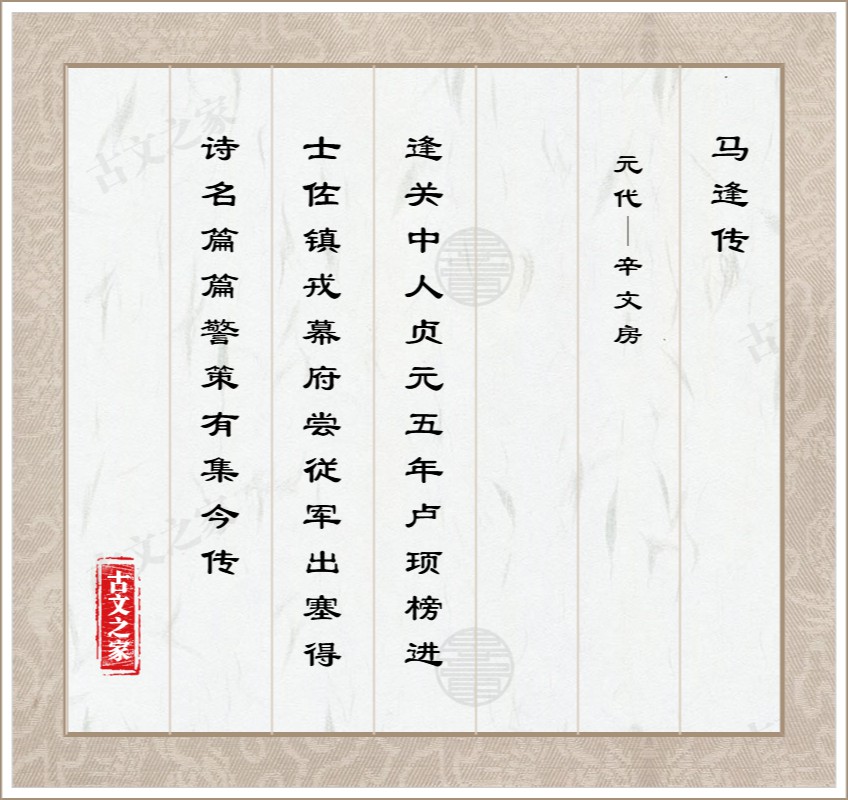 马逢传
元代—辛文房
逢关中人贞元五年卢顼榜进
士佐镇戎幕府尝从军出塞得
诗名篇篇警策有集今传
古文之家
古文之家
古文之家